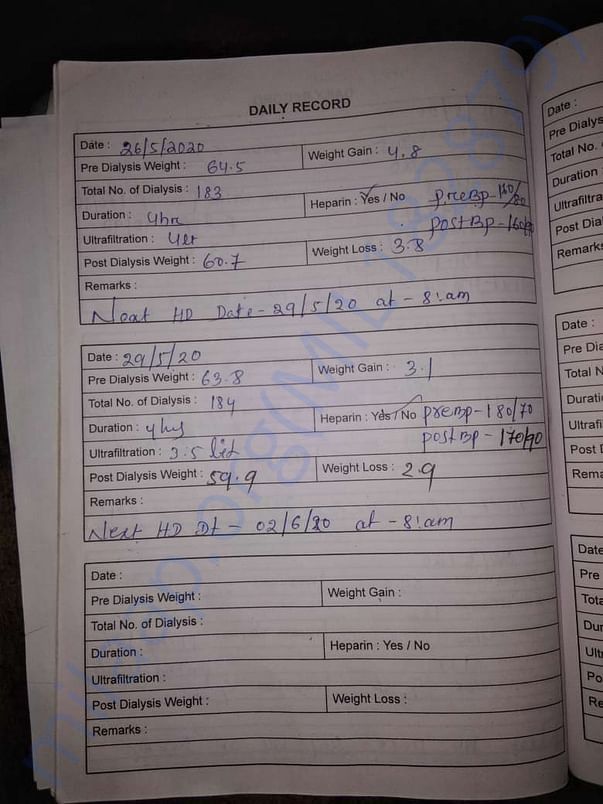 DAILY RECORD
Date : 26/5/2020
Pre Dialysis Weight : 64.5 Weight Gain : 4.8
Total No. of Dialysis : 183
Duration : 4hrs Heparin : Yes / No PreBp-180/80
Ultrafiltration : 4 lit PostBp-160/90
Post Dialysis Weight : 60.7 Weight Loss : 3.8
Remarks :
Next HD Date - 29/5/20 at - 8:am
Date : 29/5/20
Pre Dialysis Weight : 63.8 Weight Gain : 3.1
Total No. of Dialysis : 184
Duration : 4hs Heparin : Yes / No preBp-180/70
Ultrafiltration : 3.5 lit postBp-170/90
Post Dialysis Weight : 59.9 Weight Loss : 2.9
Remarks :
Next HD Dt - 02/6/20 at - 8:am
Date :
Pre Dialysis Weight : Weight Gain :
Total No. of Dialysis :
Duration : Heparin : Yes / No
Ultrafiltration :
Post Dialysis Weight : Weight Loss :
Remarks :
Date :
Pre Dialys
Total No.
Duration
Ultrafiltra
Post Dia
Remarks
Date :
Pre Dia
Total N
Durati
Ultrafi
Post D
Rema
Date
Pre
Tota
Dur
Ult
Po
Re